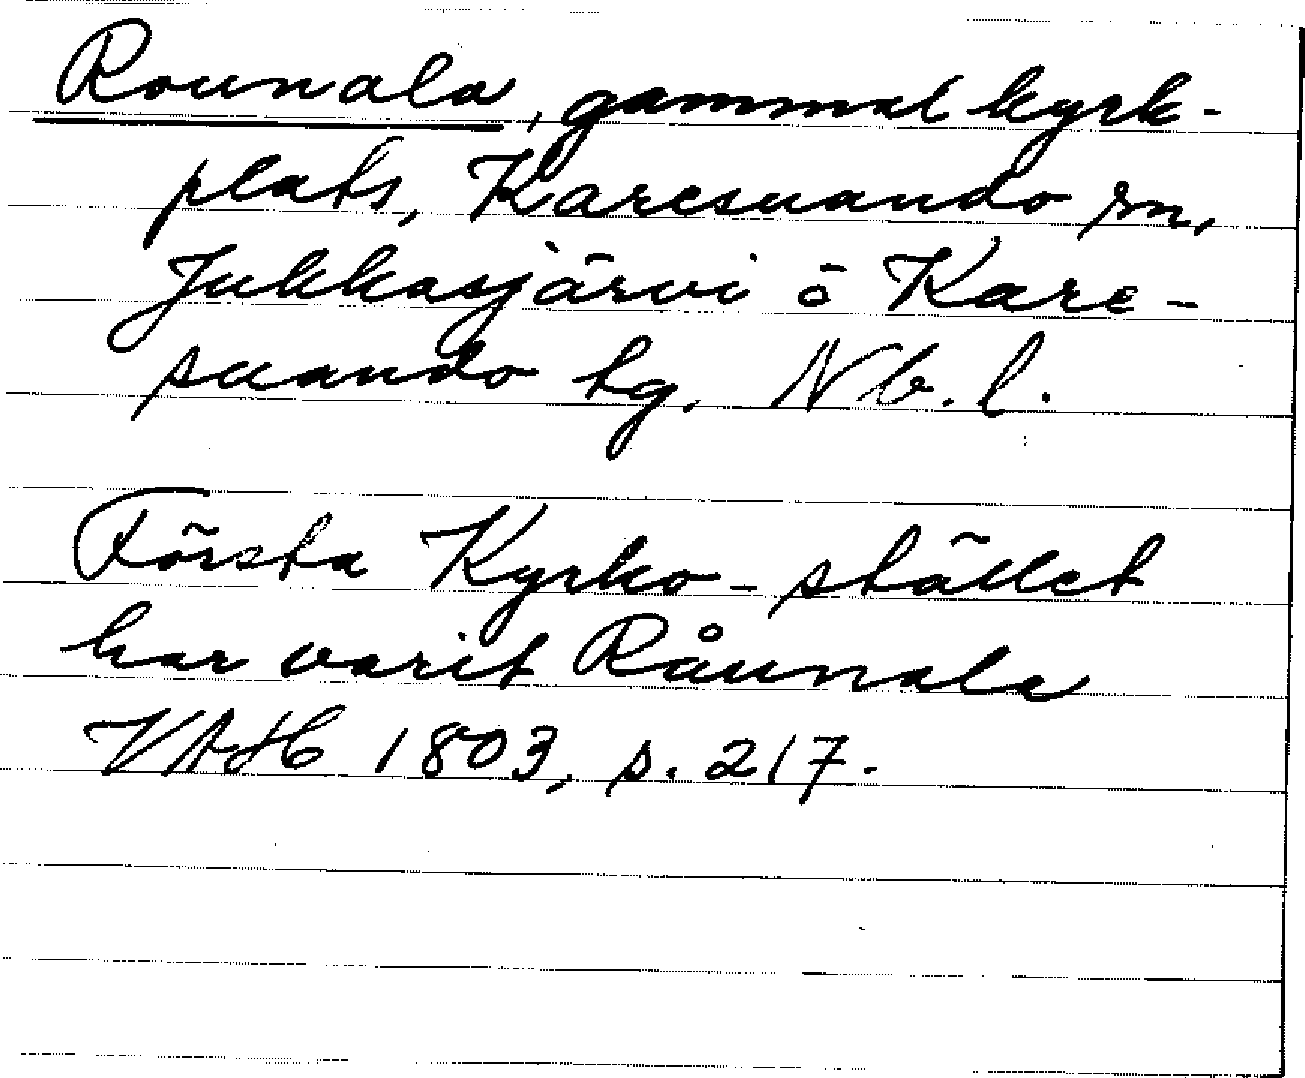 Rounala, gammal kyrk-
plats, Karesuando sn,
Jukkasjärvi o Kare-
suando tg. Nb. l.
Första Kyrko-stället
har varit Råunala
VAH 1803, s. 217.